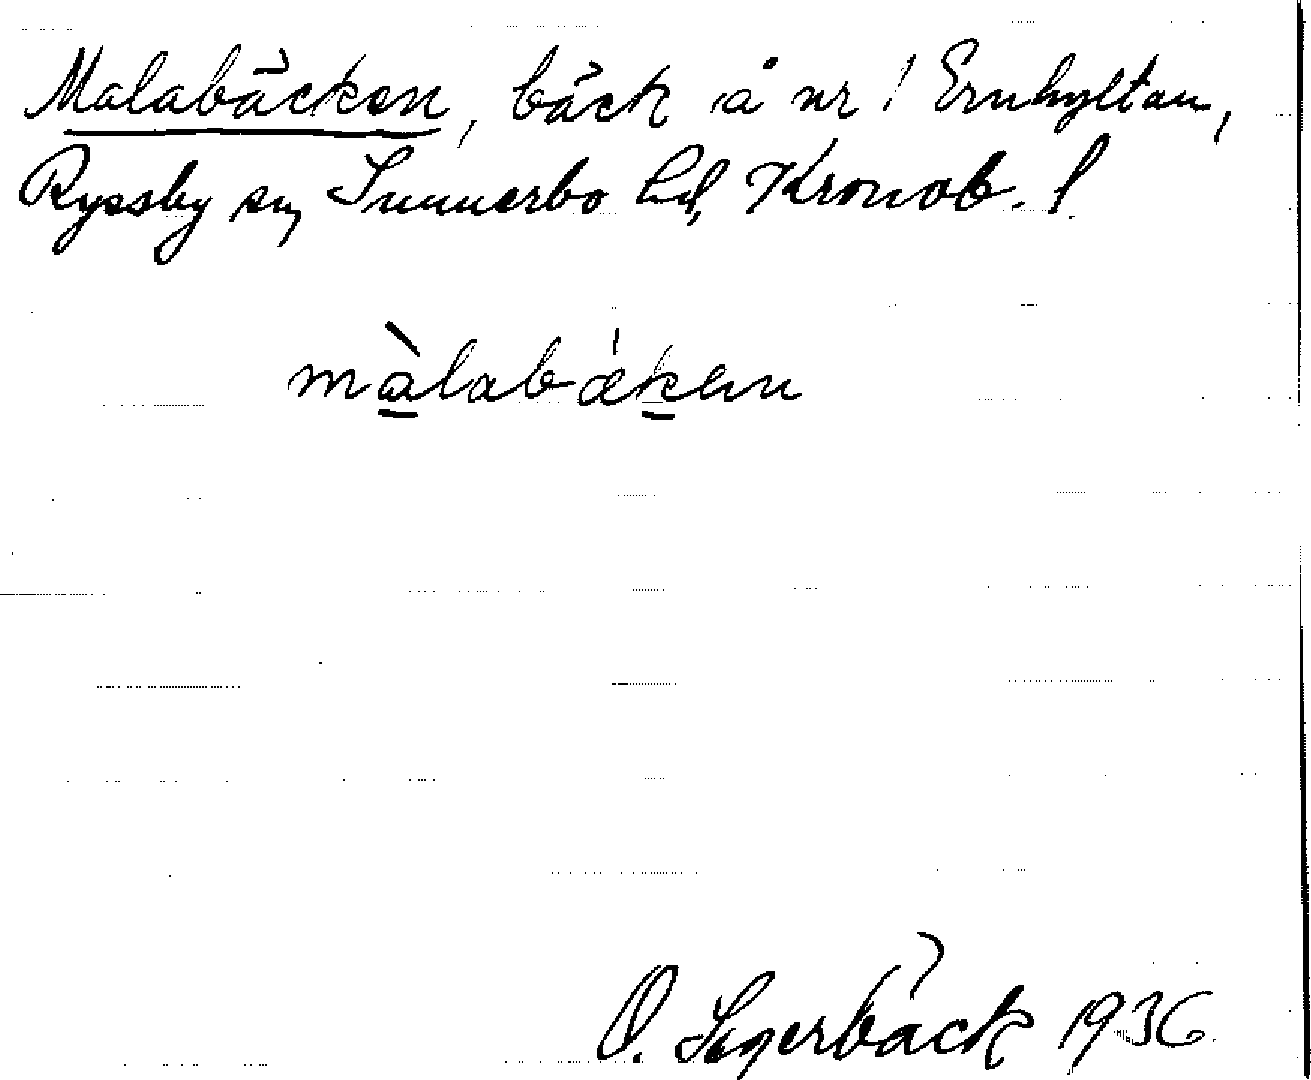 Malabäcken, bäck å nr 1 Ernhyltan,
Ryssby sn, Sunnerbo hd, Kronob. l.
màlabǽkenn
O. Segerbäck 1936